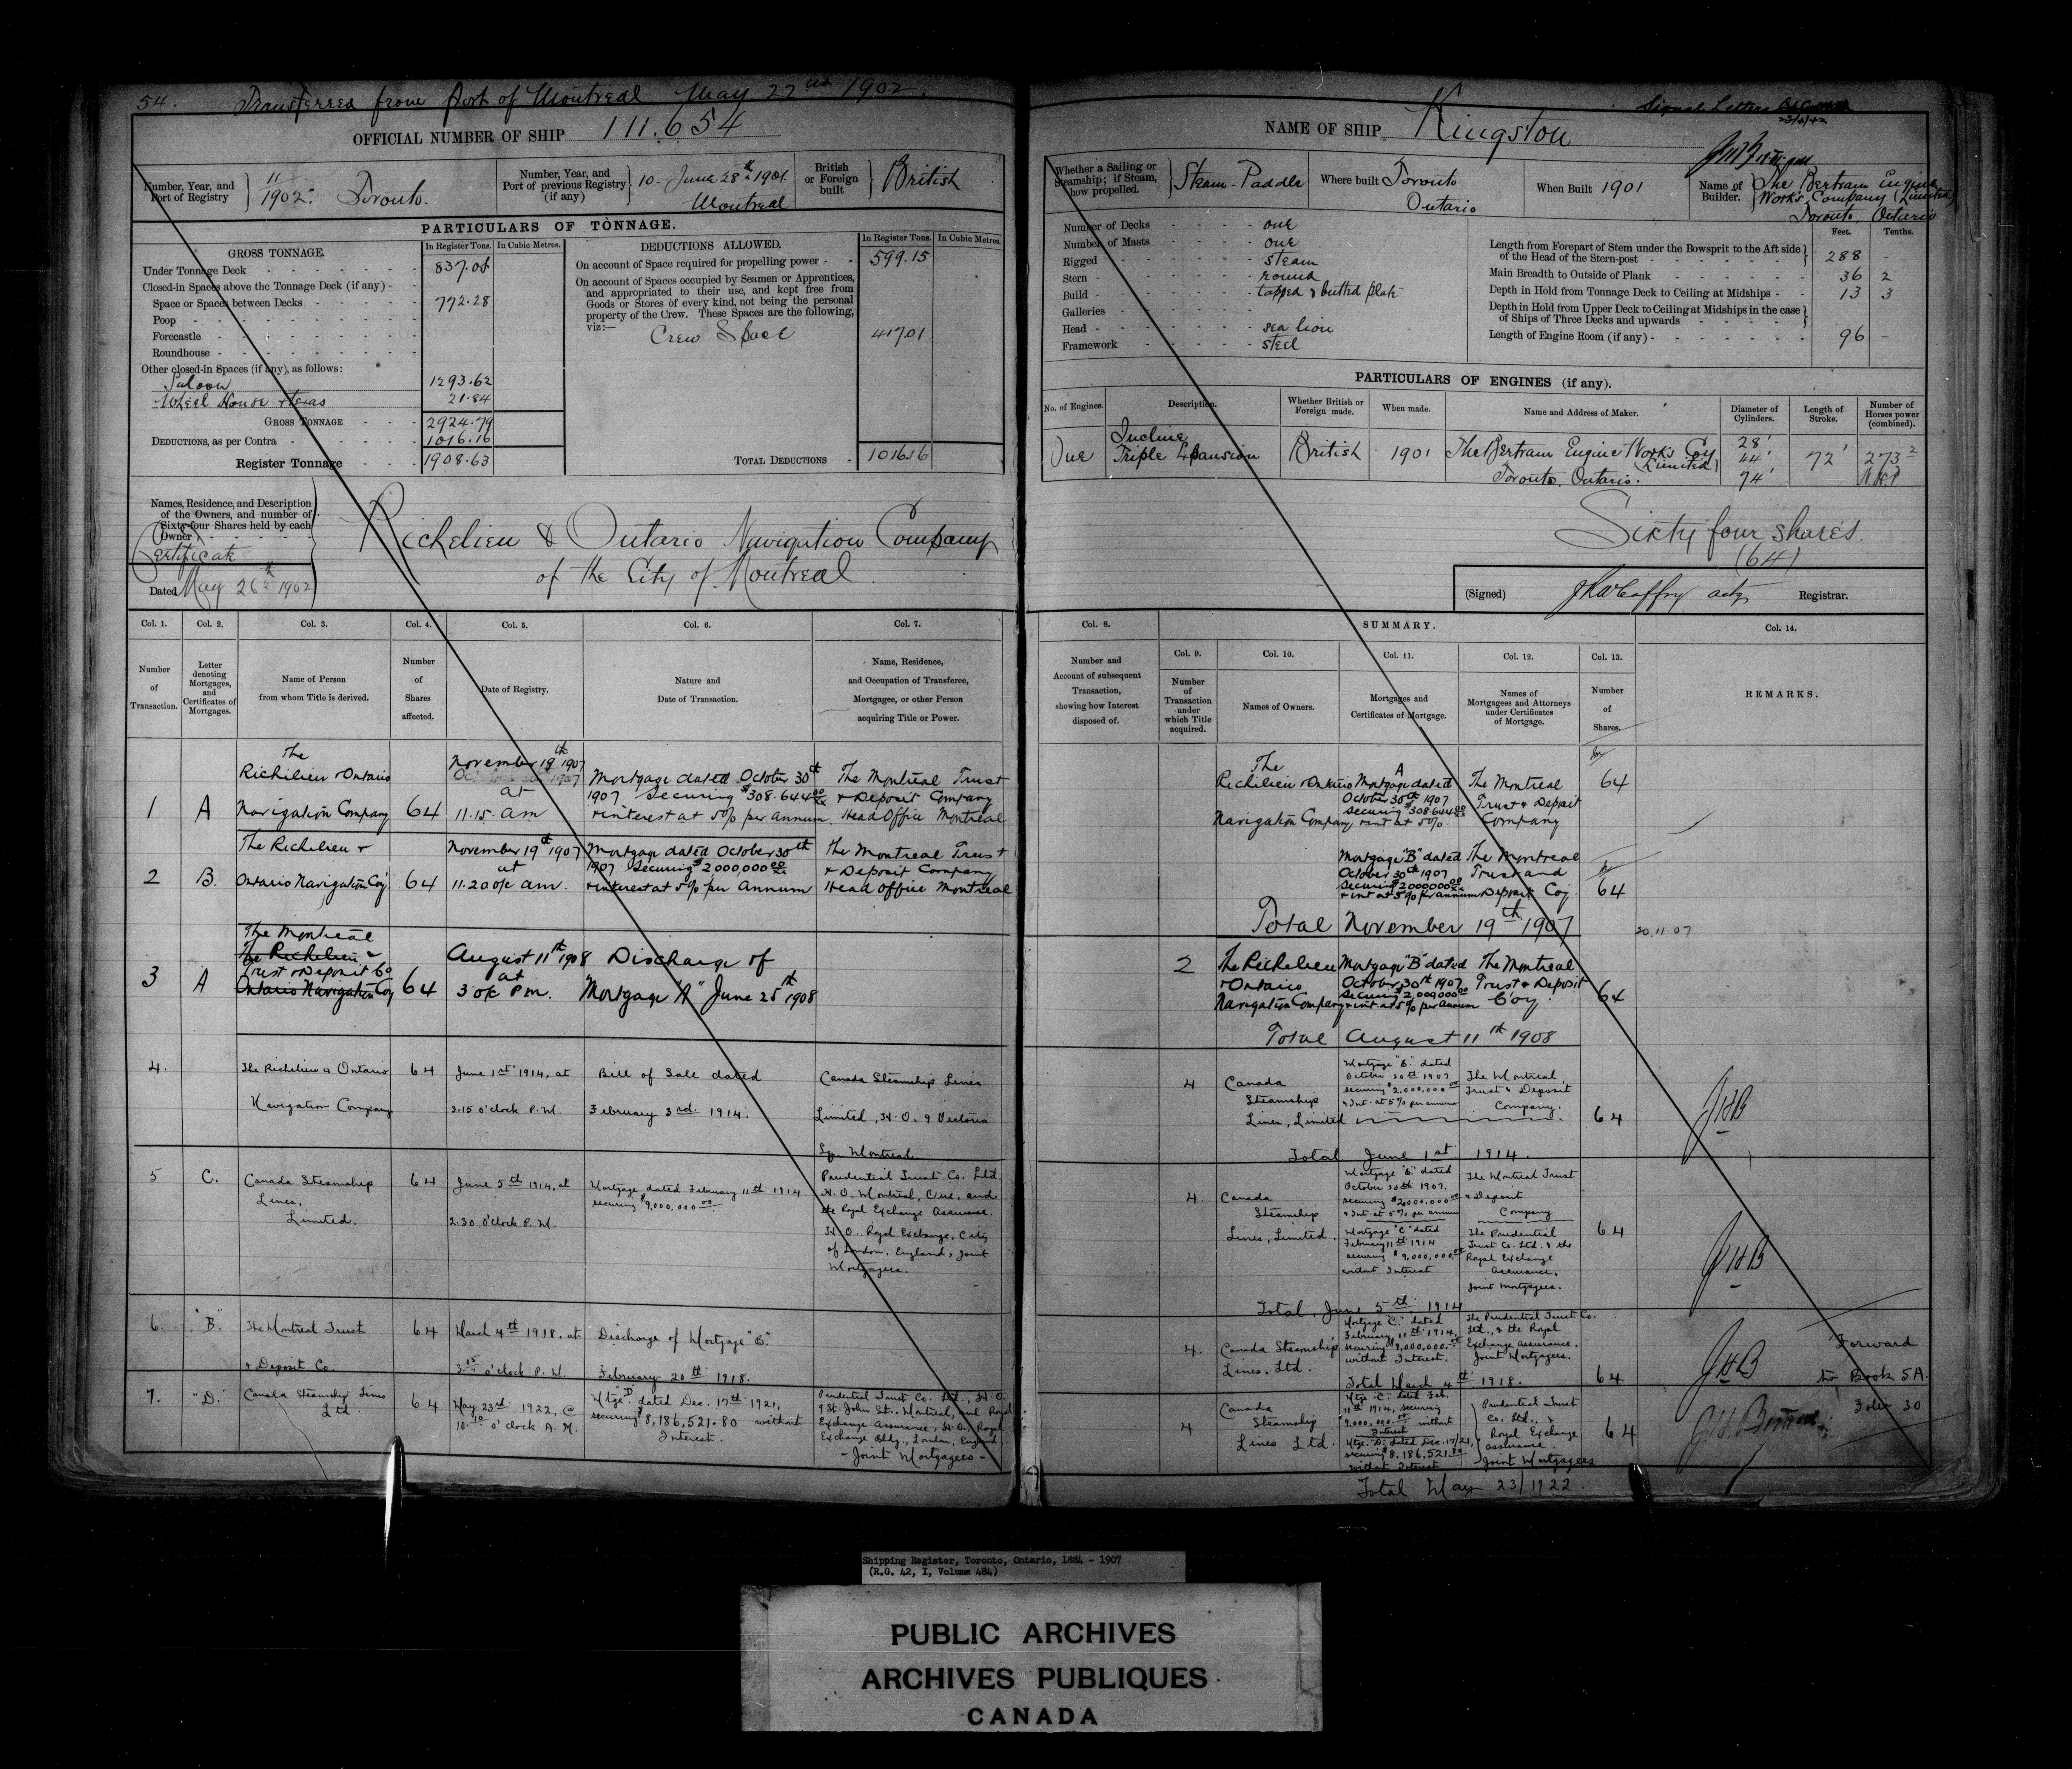 54. Transferred from Port of Montreal May 22nd 1902.
OFFICIAL NUMBER OF SHIP 111.654
Number, Year, and Port of Registry
11/1902. Toronto.
Number, Year, and Port of previous Registry (if any)
10. June 28th 1901. Montreal
British or Foreign built
British
PARTICULARS OF TONNAGE.
GROSS TONNAGE.
In Register Tons. In Cubic Metres.
Under Tonnage Deck - 837.05
Closed-in Spaces above the Tonnage Deck (if any) -
Space or Spaces between Decks - 772.28
Poop -
Forecastle -
Roundhouse -
Other closed-in Spaces (if any), as follows:
Saloon 1293.62
Wheel House & Texas 21.84
GROSS TONNAGE - 2924.79
DEDUCTIONS, as per Contra - 1016.16
Register Tonnage - 1908.63
DEDUCTIONS ALLOWED.
In Register Tons. In Cubic Metres.
On account of Space required for propelling power - 599.15
On account of Spaces occupied by Seamen or Apprentices,
and appropriated to their use, and kept free from
Goods or Stores of every kind, not being the personal
property of the Crew. These Spaces are the following,
viz:—
Crew Space 417.01
TOTAL DEDUCTIONS - 1016.16
Names, Residence, and Description
of the Owners, and number of
Sixty-four Shares held by each
Owner
Certificate
Dated May 26th 1902
Richelieu & Ontario Navigation Company
of the City of Montreal
Col. 1. Col. 2. Col. 3. Col. 4. Col. 5. Col. 6. Col. 7.
Number of Transaction.
Letter denoting Mortgages, and Certificates of Mortgages.
Name of Person from whom Title is derived.
Number of Shares affected.
Date of Registry.
Nature and Date of Transaction.
Name, Residence, and Occupation of Transferee, Mortgagee, or other Person acquiring Title or Power.
1 A The Richilieu & Ontario Navigation Company 64
November 19th 1907 at 11.15. am
Mortgage dated October 30th 1907 Securing $308.644 00/xx & interest at 5% per annum
The Montreal Trust & Deposit Company Head Office Montreal
2 B. The Richelieu & Ontario Navigation Coy 64
November 19th 1907 at 11.20 o/c am.
Mortgage dated October 30th 1907 Securing $2000,000 00/xx & interest at 5% per Annum
The Montreal Trust & Deposit Company Head Office Montreal
3 A The Montreal
The Richelieu &
Trust & Deposit Co
Ontario Navigation Coy 64
August 11th 1908 at 3 o/c P.m.
Discharge of Mortgage "A" June 25th 1908
4. The Richelieu & Ontario Navigation Company 64
June 1st 1914, at 3.15 o'clock P.M.
Bill of Sale dated February 3rd 1914.
Canada Steamship Lines Limited, H.O. 9 Victoria Sq. Montreal.
5 C. Canada Steamship Lines, Limited. 64
June 5th 1914, at 2.30 o'clock P.M.
Mortgage dated February 11th 1914 securing $9,000,000 00
Prudential Trust Co. Ltd. H.O. Montreal, Que. and the Royal Exchange Assurance. H.O. Royal Exchange, City of London, England, Joint Mortgagees.
6. "B." The Montreal Trust & Deposit Co. 64
March 4th 1918, at 3.15 o'clock P.M.
Discharge of Mortgage "B." February 20th 1918.
7. "D." Canada Steamship Lines Ltd. 64
May 23rd 1922, @ 10.10 o'clock A.M.
Mtge "D" dated Dec. 17th 1921, securing $8,186,521.80 without Interest.
Prudential Trust Co. Ltd., H.O. 9 St. John St. Montreal, and Royal Exchange Assurance, H.O. Royal Exchange Bldg., London, England. - Joint Mortgagees -
Signal Letters
23/4/42
NAME OF SHIP Kingston
Whether a Sailing or Steamship; if Steam, how propelled.
Steam-Paddle
Where built Toronto Ontario
When Built 1901
Name of Builder.
The Bertram Engine Works Company (Limited) Toronto, Ontario
Number of Decks - one
Number of Masts - one
Rigged - steam
Stern - round
Build - lapped & butted plate
Galleries -
Head - sea lion
Framework - steel
Feet. Tenths.
Length from Forepart of Stem under the Bowsprit to the Aft side of the Head of the Stern-post - 288 -
Main Breadth to Outside of Plank - 36 2
Depth in Hold from Tonnage Deck to Ceiling at Midships - 13 3
Depth in Hold from Upper Deck to Ceiling at Midships in the case of Ships of Three Decks and upwards -
Length of Engine Room (if any) - 96 -
PARTICULARS OF ENGINES (if any).
No. of Engines. Description. Whether British or Foreign made. When made. Name and Address of Maker. Diameter of Cylinders. Length of Stroke. Number of Horses power (combined).
One Incline Triple Expansion British 1901 The Bertram Engine Works Coy (Limited) Toronto, Ontario. 28' 44' 74' 72' 273 2 N.H.P
Sixty four shares.
(64)
(Signed) Registrar.
Col. 8. SUMMARY. Col. 14.
Col. 9. Col. 10. Col. 11. Col. 12. Col. 13.
Number and Account of subsequent Transaction, showing how Interest disposed of.
Number of Transaction under which Title acquired.
Names of Owners.
Mortgages and Certificates of Mortgage.
Names of Mortgagees and Attorneys under Certificates of Mortgage.
Number of Shares.
REMARKS.
The Richilieu & Ontario Navigation Company
A Mortgage dated October 30th 1907 Securing $308644 00 & int at 5%.
The Montreal Trust & Deposit Company 64
Mortgage "B" dated October 30th 1907 Securing $2000000 00 & int at 5% per annum
The Montreal Trust and Deposit Coy 64
Total November 19th 1907
20.11.07
2 The Richelieu & Ontario Navigation Company
Mortgage "B" dated October 30th 1907 Securing $2,000000 00 & int at 5% per annum
The Montreal Trust & Deposit Coy. 64
Total August 11th 1908
4 Canada Steamship Lines, Limited
Mortgage "B." dated October 30th 1907 securing $2,000,000 00 & Int. at 5% per annum
The Montreal Trust & Deposit Company. 64
JHB
Total June 1st 1914.
4. Canada Steamship Lines, Limited.
Mortgage "B." dated October 30th 1907. securing $2,000,000 00 & Int. at 5% per annum
The Montreal Trust & Deposit Company
Mortgage "C" dated February 11th 1914 securing $9,000,000 00 without Interest
The Prudential Trust Co. Ltd. & the Royal Exchange Assurance, Joint Mortgagees. 64
JHB
Total, June 5th 1914
4. Canada Steamship Lines, Ltd.
Mortgage "C." dated February 11th 1914, securing $9,000,000 00 without Interest.
The Prudential Trust Co. Ltd., & the Royal Exchange Assurance. Joint Mortgagees. 64
Total March 4th 1918.
JHB
Forward
to Book 5A.
Folio 30
4 Canada Steamship Lines Ltd.
Mtge. "C." dated Feb. 11th 1914, securing $9,000,000 00 without Interest
Mtge. "D." dated Dec. 17/21, securing $8,186,521.80 without Interest
Prudential Trust Co. Ltd., & Royal Exchange Assurance. Joint Mortgagees 64
Total May 23/1922.
Shipping Register, Toronto, Ontario, 1884 - 1907
(R.G. 42, I, Volume 484)
PUBLIC ARCHIVES
ARCHIVES PUBLIQUES
CANADA